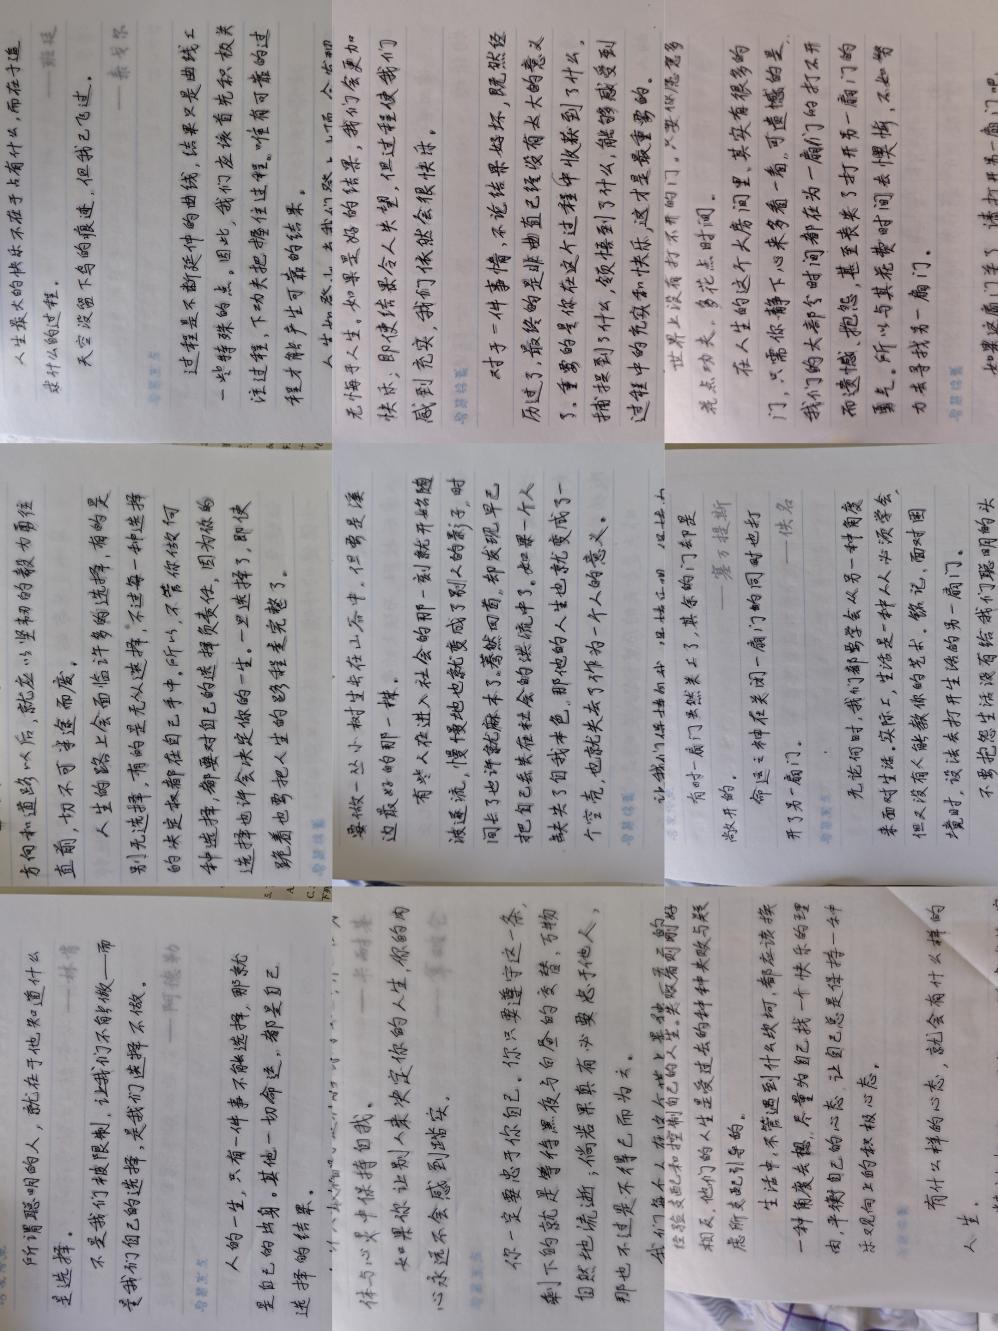 人生最大的快乐不在于占有什么,而在于追
求什么的过程。
——班廷
天空没留下鸟的痕迹,但我已飞过。
——泰戈尔
智慧点点
过程是不断延伸的曲线,结果只是曲线上
一些特殊的点。因此,我们应该首先积极关
注过程,下功夫把握住过程。唯有可靠的过
程才能产生可靠的结果。
无悔于人生。如果是好的结果,我们会更加
快乐;即使结果令人失望,但过程使我们
感到充实,我们依然会很快乐。
智慧锦囊
对于一件事情,不论结果好坏,既然经
历过了,最终的是非曲直已经没有太大的意义
了。重要的是你在这个过程中收获到了什么,
捕捉到了什么,领悟到了什么,能够感受到
过程中的充实和快乐,这才是最重要的。
世界上没有打不开的门。只要你愿意多
花点功夫,多花点时间。
在人生的这个大房间里,其实有很多的
门,只需你静下心来多看一看。可遗憾的是,
我们的大部分时间都在为一扇门的打不开
而遗憾、抱怨,甚至丧失了打开另一扇门的
勇气。所以与其花费时间去懊悔,不如努
力去寻找另一扇门。
智慧锦囊
如果这扇门关了,请打开另一扇门吧
方向和道路以后,就应以坚韧的毅力勇往
直前,切不可半途而废。
人生的路上会面临许多的选择,有的是
别无选择,有的是无从选择,不过每一种选择
的决定权都在自己手中。所以,不管你做何
种选择,都要对自己的选择负责任,因为你的
选择也许会决定你的一生。一旦选择了,即使
跪着也要把人生的路程走完整了。
智慧锦囊
要做一丛小树生长在山谷中,但要是溪
边最好的那一株。
有些人在进入社会的那一刻就开始随
波逐流,慢慢地也就变成了别人的影子,时
间长了也许就麻木了。蓦然回首,却发现早已
把自己丢失在社会的洪流中了。如果一个人
缺失了自我本色,那他的人生也就变成了一
个空壳,也就失去了作为一个人的意义。
智慧锦囊
有时一扇门虽然关上了,其余的门却是
敞开的。
——塞万提斯
命运之神在关闭一扇门的同时也打
开了另一扇门。
——佚名
智慧点点
无论何时,我们都要学会从另一种角度
来面对生活。实际上,生活是一种人人必须学会,
但又没有人能教你的艺术。铭记,面对困
境时,设法去打开生活的另一扇门。
不要抱怨生活没有给我们聪明的头
所谓聪明的人,就在于他知道什么
是选择。
——林肯
不是我们被限制,让我们不能做——而
是我们自己的选择,是我们选择不做。
——阿德勒
智慧点点
人的一生,只有一件事不能选择,那就
是自己的出身。其他一切命运,都是自己
选择的结果。
体与心灵中保持自我。
如果你让别人来决定你的人生,你的内
心永远不会感到踏实。
智慧点点
你一定要忠于你自己。你只要遵守这一条,
剩下的就是等待黑夜与白昼的交替,万物
自然地流逝;倘若果真有必要忠于他人,
那也不过是不得已而为之。
经验支配和控制自己的人生。失败者则刚好
相反,他们的人生是受过去的种种失败与疑
虑所支配引导的。
生活中,不管遇到什么坎坷,都应该换
一种角度去想,尽量为自己找一个快乐的理
由,平衡自己的心态,让自己总是保持一种
乐观向上的积极心态。
智慧锦囊
有什么样的心态,就会有什么样的
人生。